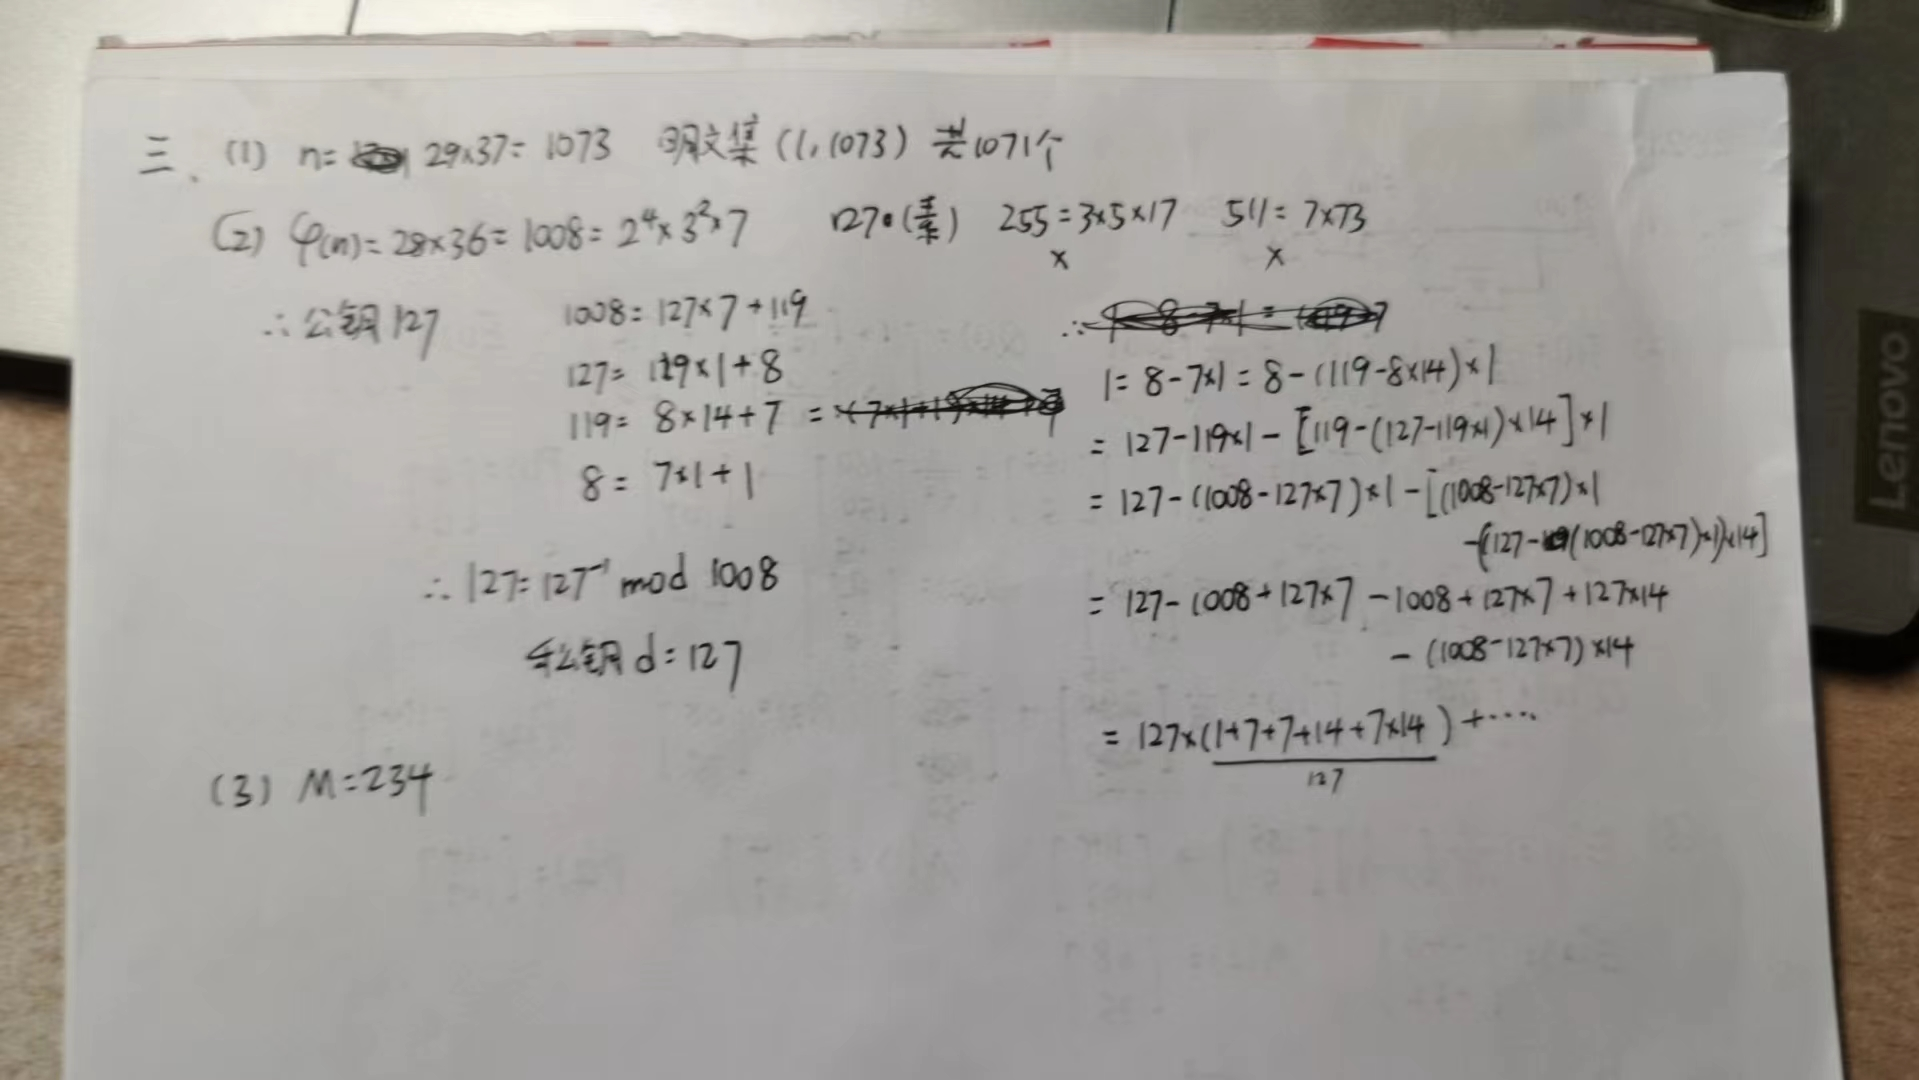 三、(1) n= 29×37= 1073 明文集 (1,1073) 共1071个
(2) φ(n)= 28×36= 1008= 2⁴×3²×7 127·(素) 255=3×5×17 511= 7×73
× ×
∴公钥127
1008= 127×7+119
127= 119×1+8
119= 8×14+7 =
8= 7×1+1
∴127=127⁻¹ mod 1008
私钥d=127
∴
1= 8-7×1= 8-(119-8×14)×1
= 127-119×1-[119-(127-119×1)×14]×1
= 127-(1008-127×7)×1-[(1008-127×7)×1
-(127-(1008-127×7)×1)×14]
= 127-1008+127×7-1008+127×7+127×14
-(1008-127×7)×14
= 127×(1+7+7+14+7×14)+····
127
(3) M=234
Lenovo